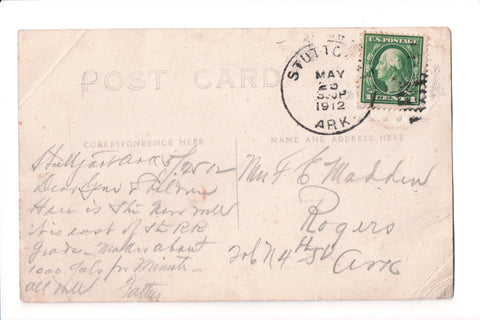 POST CARD
STUTTG
MAY
25
1912
ARK.
U.S. POSTAGE
1 CENT 1
CORRESPONDENCE HERE
NAME AND ADDRESS HERE
Ark 5/25 12
Dear
Here is the New well
it is east of the RR
grade - makes about
1000 Gals per Minute -
all well
Mrs F C Madden
Rogers
206 N 4th St Ark